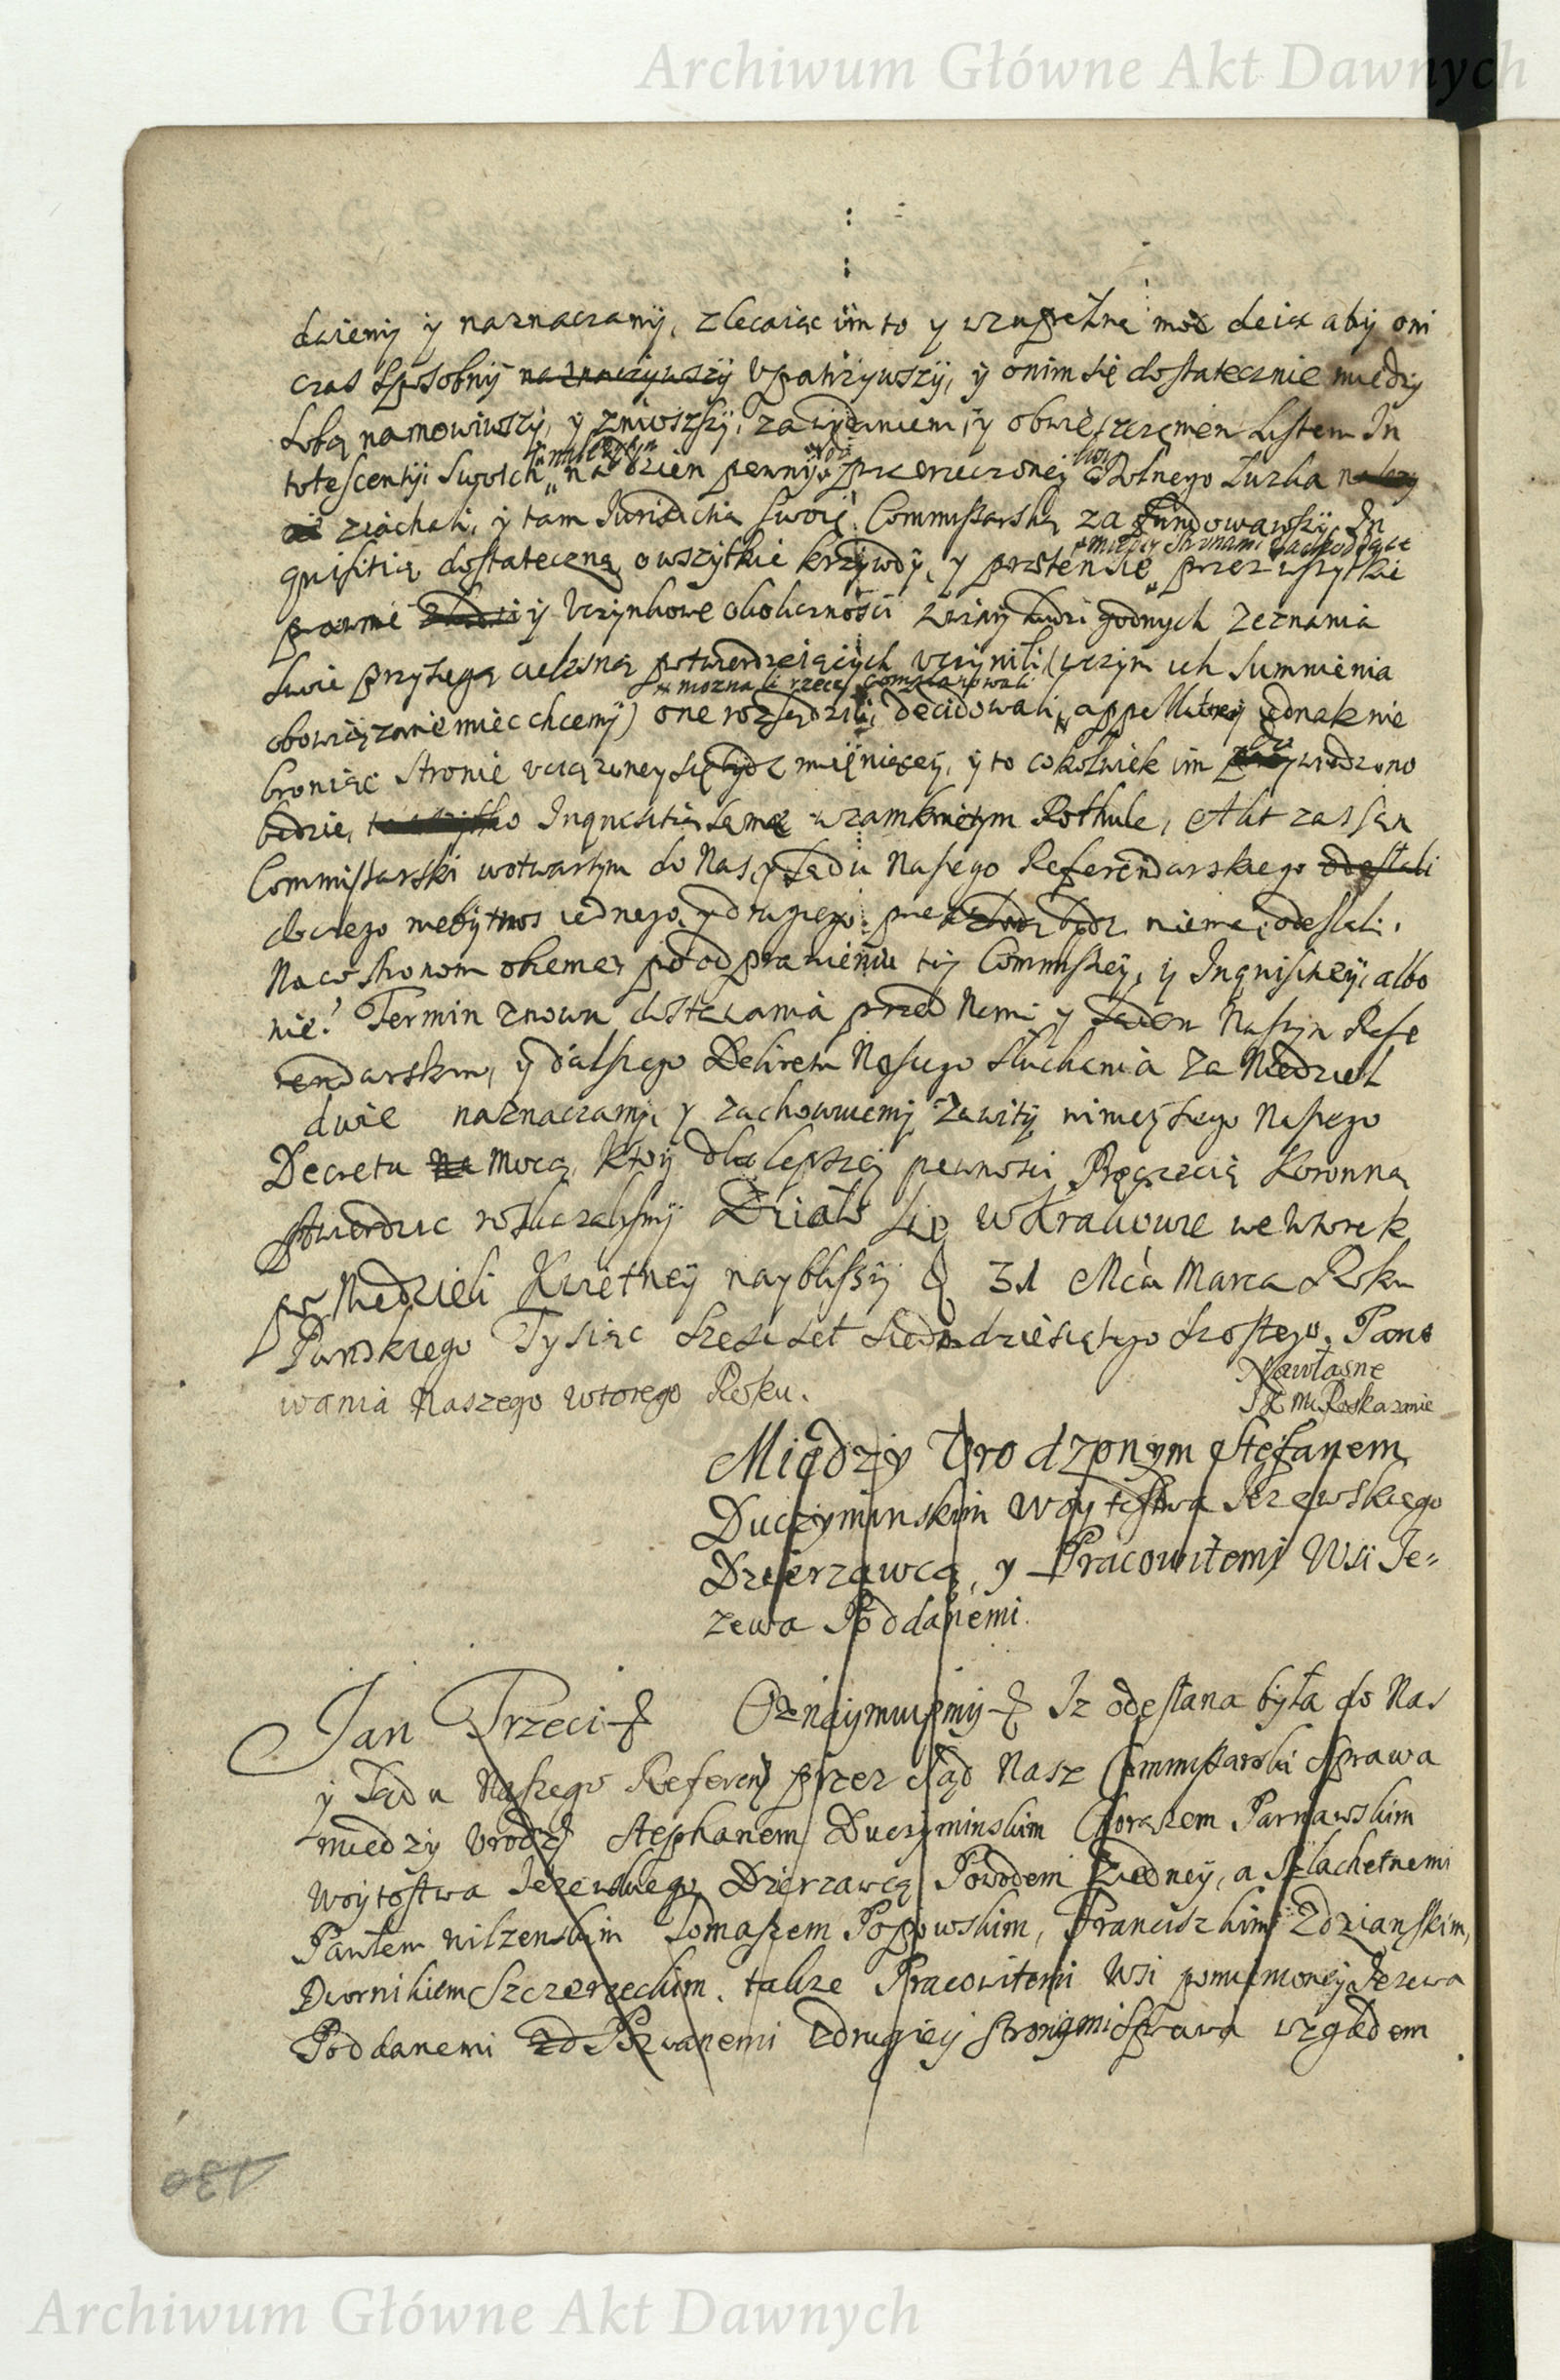 Archiwum Główne Akt Dawnych
daiemy y naznaczamy, zlecaiąc im to y wzupełną moc daiąc aby oni
czas sposobny naznaczywszy upatrzywszy, y onim się dostatecznie miedzy
sobą namowiwszy, y zniosszy, zawydaniem y obwieszczęniem Listem In
notescentyi swoich na dzien pewny przerzeczonej Wolnego Łuzka
ziachali, y tam Iurisdictią swoię Commissarską zafundowawszy, In
między stronami zachodzące
quisitią dostateczną owszytkie krzywdy, y praetensie przez wszytkie
prawne y Uczynkowe okoliczności zwiary ludzi godnych zeznania
swie przysięgą cielesną potwierdzaiących uczynili (wczym ich sumnienia
mozna li rzecz componowali
obowiązanie miec chcemy) one rozsądzili, decidowali, appellatiey iednak nie
broniąc stronie uciązoney się bydz mieniącey, y to cokolwiek im wiedziono
będzie, Inquisitią samą wzamkniętym Rothule, Akt zas sam
Commissarski wotwartym do Nas y Sądu Naszego Referendarskiego odesłali
dlaczego niebytnos iednego y drugiego niema, odesłali.
Naco stronom obiema po odprawieniu tey Commissyey, y Inquisitiey albo
nie? Termin znowu stawania przed Nami y Sądem Naszym Refe
rendarskim, y dalszego Dekretu Naszego słuchania za Niedziel
dwie naznaczamy, y zachowuiemy zawity ninieyszego Naszego
Decretu na mocą, ktory dla lepszej pewnosci Pięczęcią Koronną
stwierdzic roskazalismy Działo się w Krakowie we Wtorek
po Niedzieli Kwietney nayblisszy d 31 Mca Marca Roku
Panskiego Tysiąc Szescset Siedmdziesiątego Szostego, Pano
wania Naszego wtorego Roku.
Nawłasne
JKMci Roskazanie
Między Urodzonym Stefanem
Duczyminskim Woytostwa Jezewskiego
Dzierzawcą, y Pracowitemi Wsi Je=
zewa Poddanemi.
Jan Trzeci Oznaymuiemy Iz odesłana była do Nas
y Sądu Naszego Referen przez Sąd Nasz Commissarski Sprawa
miedzy Urodz Stephanem Duczyminskim Chorązem Parnawskim
Woytostwa Jezewskiego Dzierzawcą Powodem Ziedney, a Szlachetnemi
Pawłem Nilzenskim Tomaszem Popowskim, Franciszkim Zdzianskim,
Dwornikiem Szczerzeckim, takze Pracowitemi Wsi pomienioney Jezewa
Poddanemi zd Pozwanemi zdrugiey stronami Sprawa względem
130
Archiwum Główne Akt Dawnych